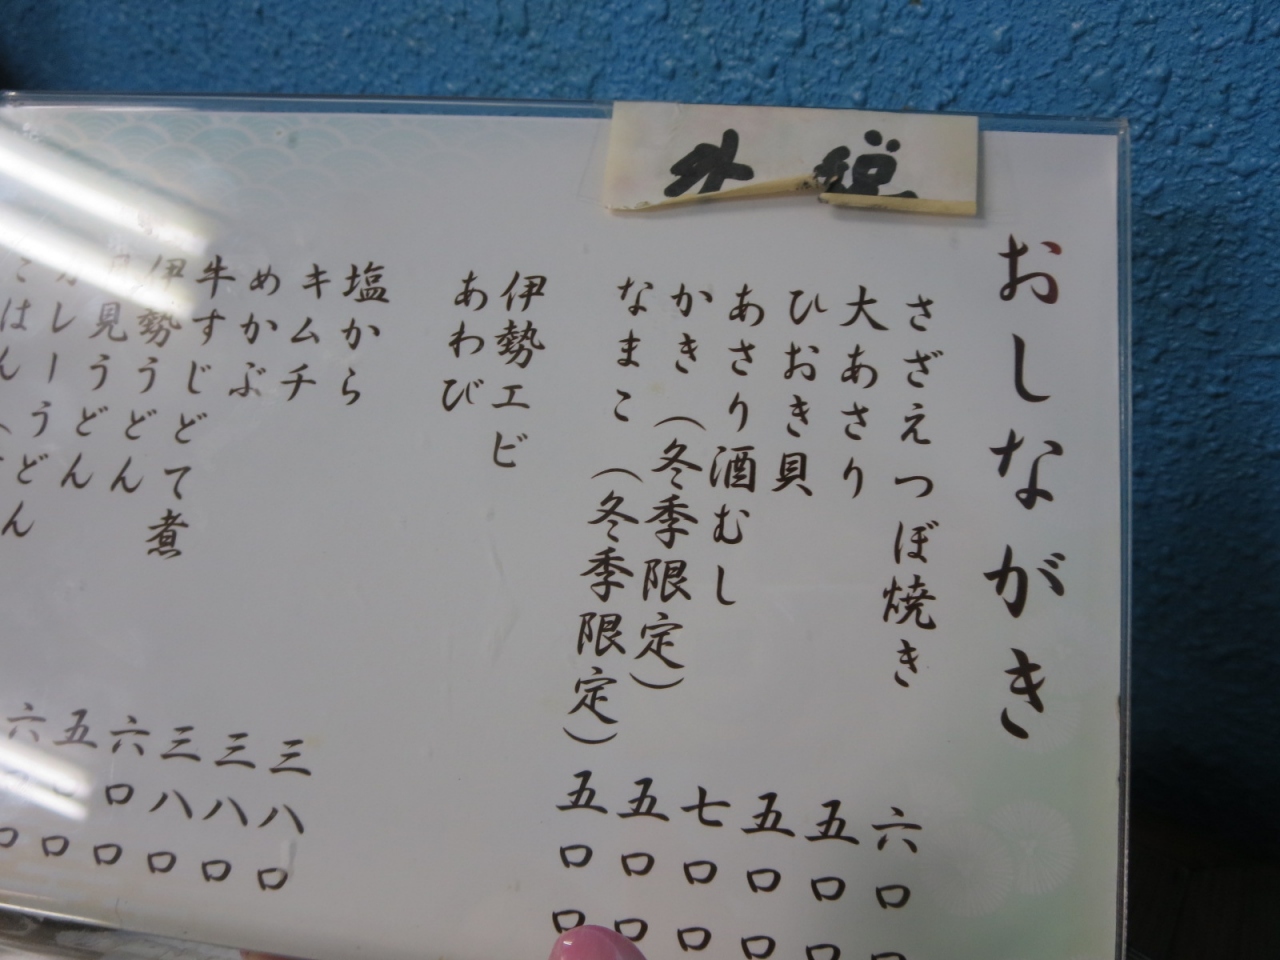 外税
おしながき
さざえつぼ焼き 六〇〇
大あさり 五〇〇
ひおき貝 五〇〇
あさり酒むし 七〇〇
かき（冬季限定） 五〇〇
なまこ（冬季限定） 五〇〇
伊勢エビ
あわび
塩から 三八〇
キムチ 三八〇
めかぶ 三八〇
牛すじどて煮 六〇〇
伊勢うどん 五〇〇
月見うどん 六〇〇
カレーうどん
ごはん